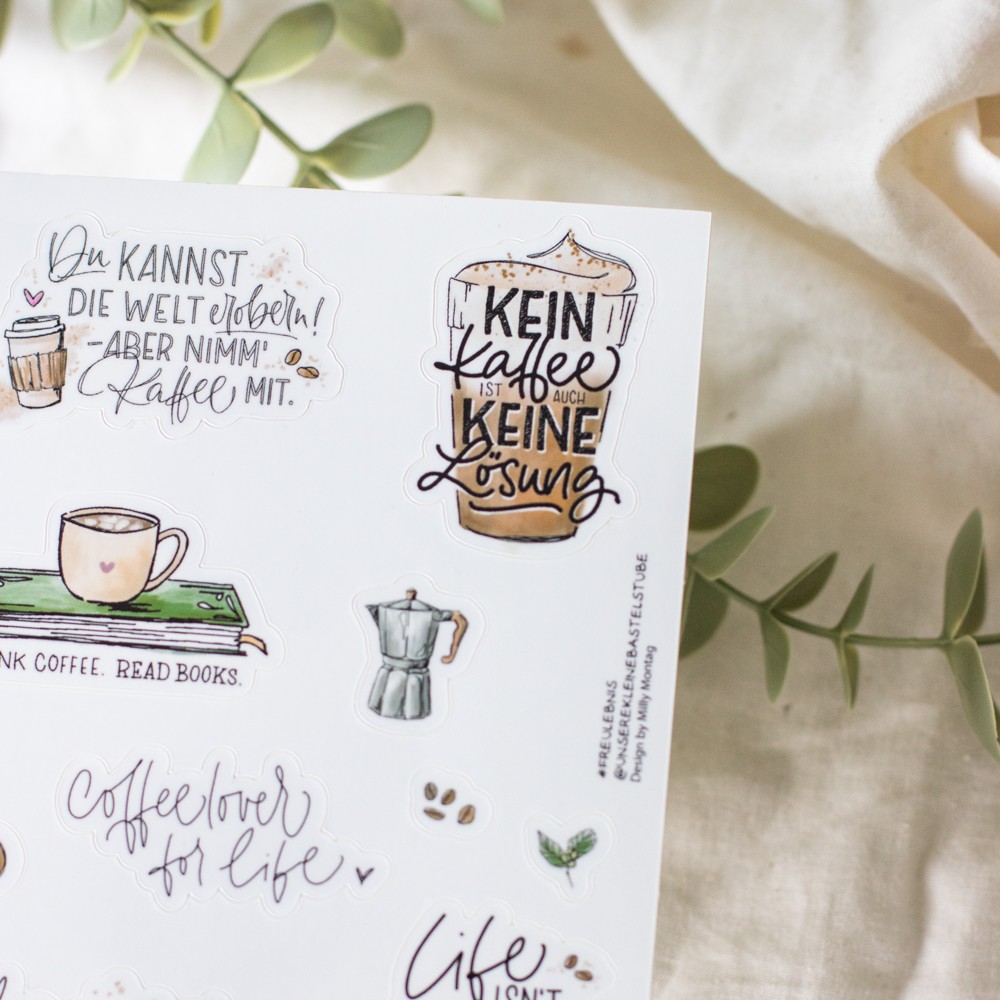 Du KANNST
DIE WELT erobern!
-ABER NIMM'
Kaffee MIT.
KEIN
Kaffee
IST AUCH
KEINE
Lösung
COFFEE. READ BOOKS.
#FREULEBNIS
@UNSEREKLEINEBASTELSTUBE
Design by Milly Montag
coffeelover
for life
Life
ISN'T